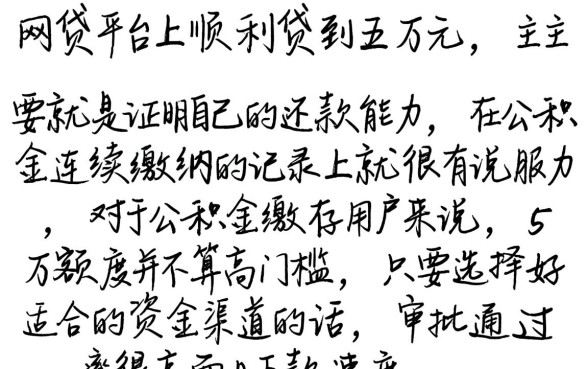 网贷平台上顺利贷到五万元，主主
要就是证明自己的还款能力，在公积
金连续缴纳的记录上就很有说服力
，对于公积金缴存用户来说，5
万额度并不算高门槛，只要选择好
适合的资金渠道的话，审批通过
率很高而且下款速度